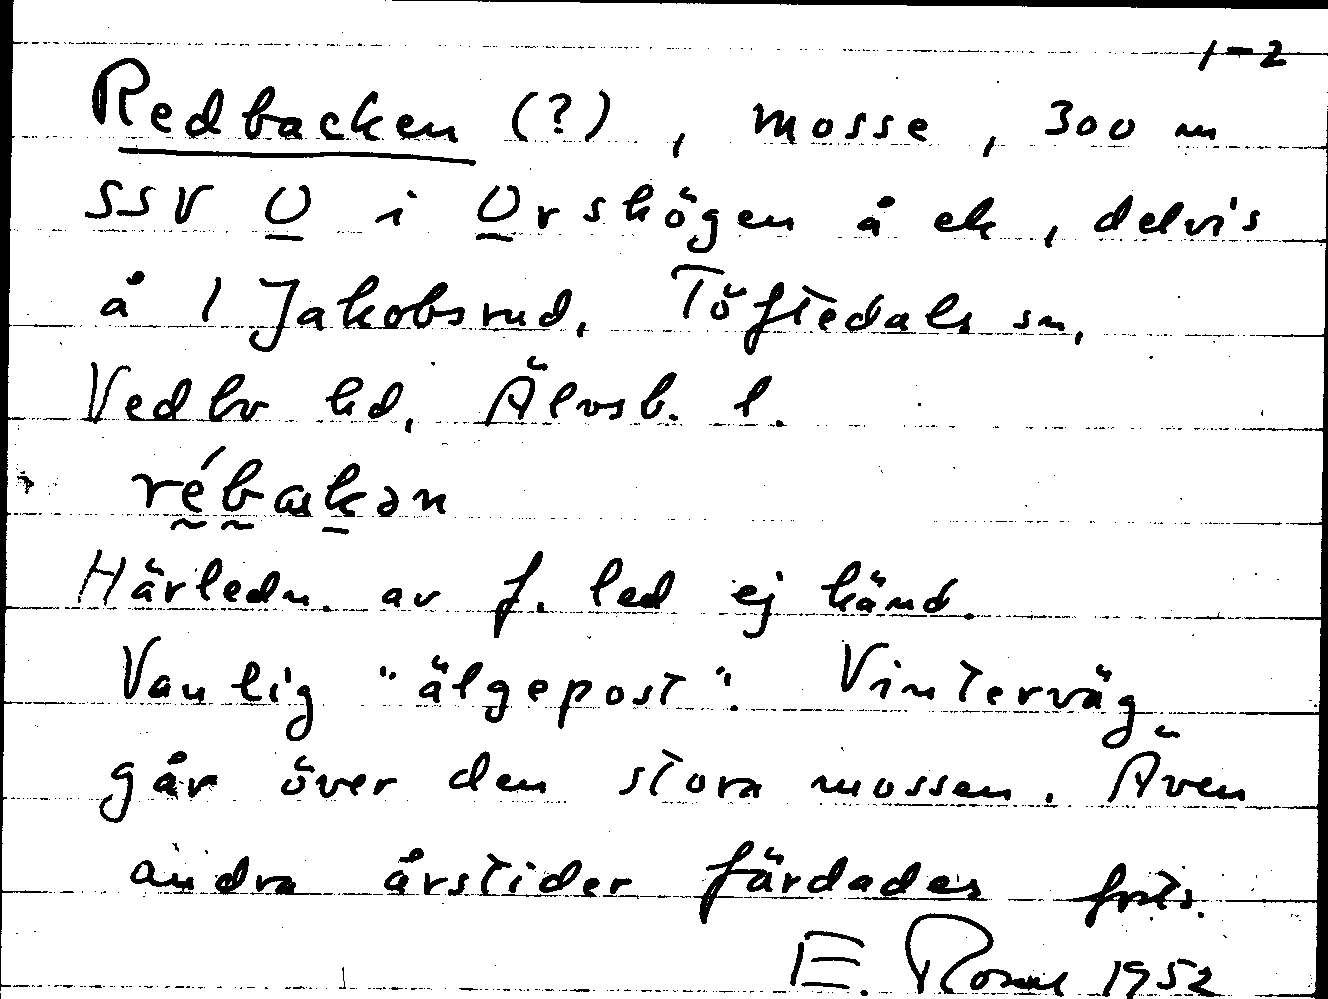 1-2
Redbacken (?), mosse, 300 m
SSV U i Urskögen å ek, delvis
å 1 Jakobsrud, Töftedals sn,
Vedbo hd, Älvsb. l.
rébakən
Härledn. av f. led ej känd.
Vanlig "älgepost". Vinterväg
går över den stora mossen. Även
andra årstider färdades
E. 1952